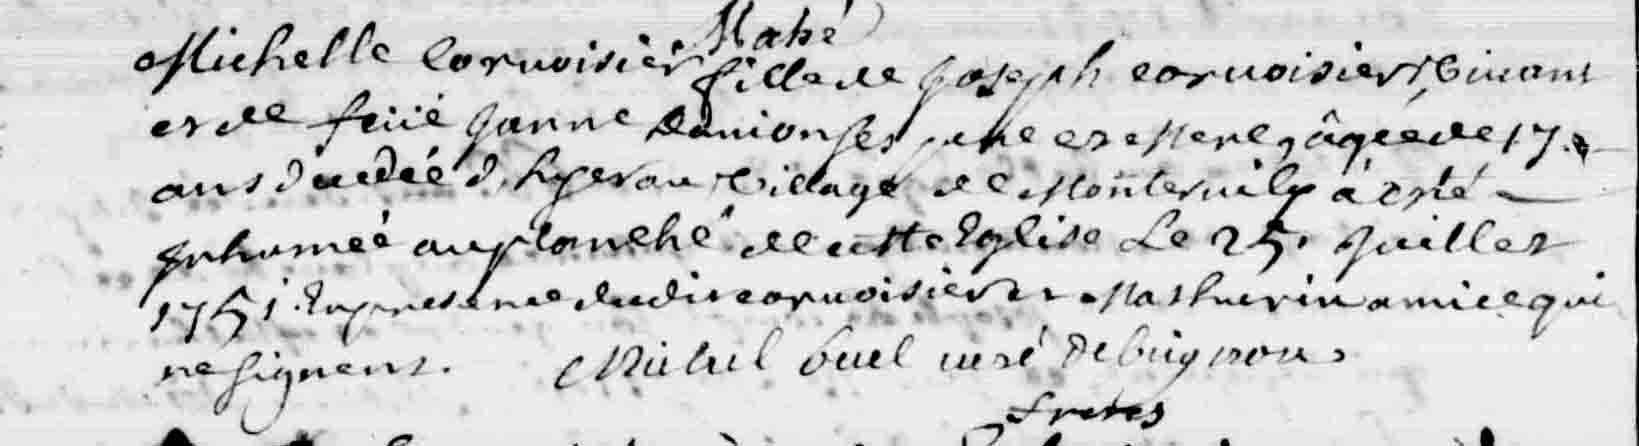 Mahé
Michelle Corvoisier fille de Joseph corvoisier vivant
et de feüé Janne ses pere et Mere, âgée de 17
ans decedée d'hyer au village de Monteruily à esté
Inhumée au planché de cette Eglise Le 25. Juillet
1751. En presence dudit corvoisier et Mathurin amice qui
ne signent. Michel buel curé de bignon
freres